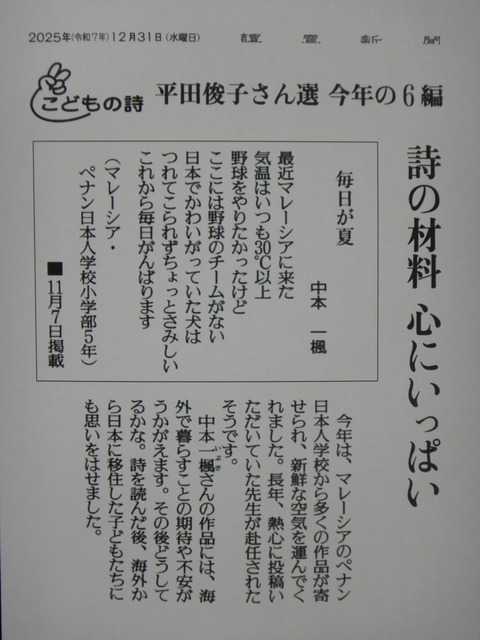 2025年(令和7年)12月31日(水曜日)
讀賣新聞
こどもの詩
平田俊子さん選 今年の6編
詩の材料 心にいっぱい
毎日が夏
中本 一楓
最近マレーシアに来た
気温はいつも30℃以上
野球をやりたかったけど
ここには野球のチームがない
日本でかわいがっていた犬は
つれてこられずちょっとさみしい
これから毎日がんばります
(マレーシア・
ペナン日本人学校小学部5年)
■11月7日掲載
今年は、マレーシアのペナン
日本人学校から多くの作品が寄
せられ、新鮮な空気を運んでく
れました。長年、熱心に投稿い
ただいていた先生が赴任された
そうです。
中本一楓さんの作品には、海
いぶき
外で暮らすことの期待や不安が
うかがえます。その後どうして
るかな。詩を読んだ後、海外か
ら日本に移住した子どもたちに
も思いをはせました。